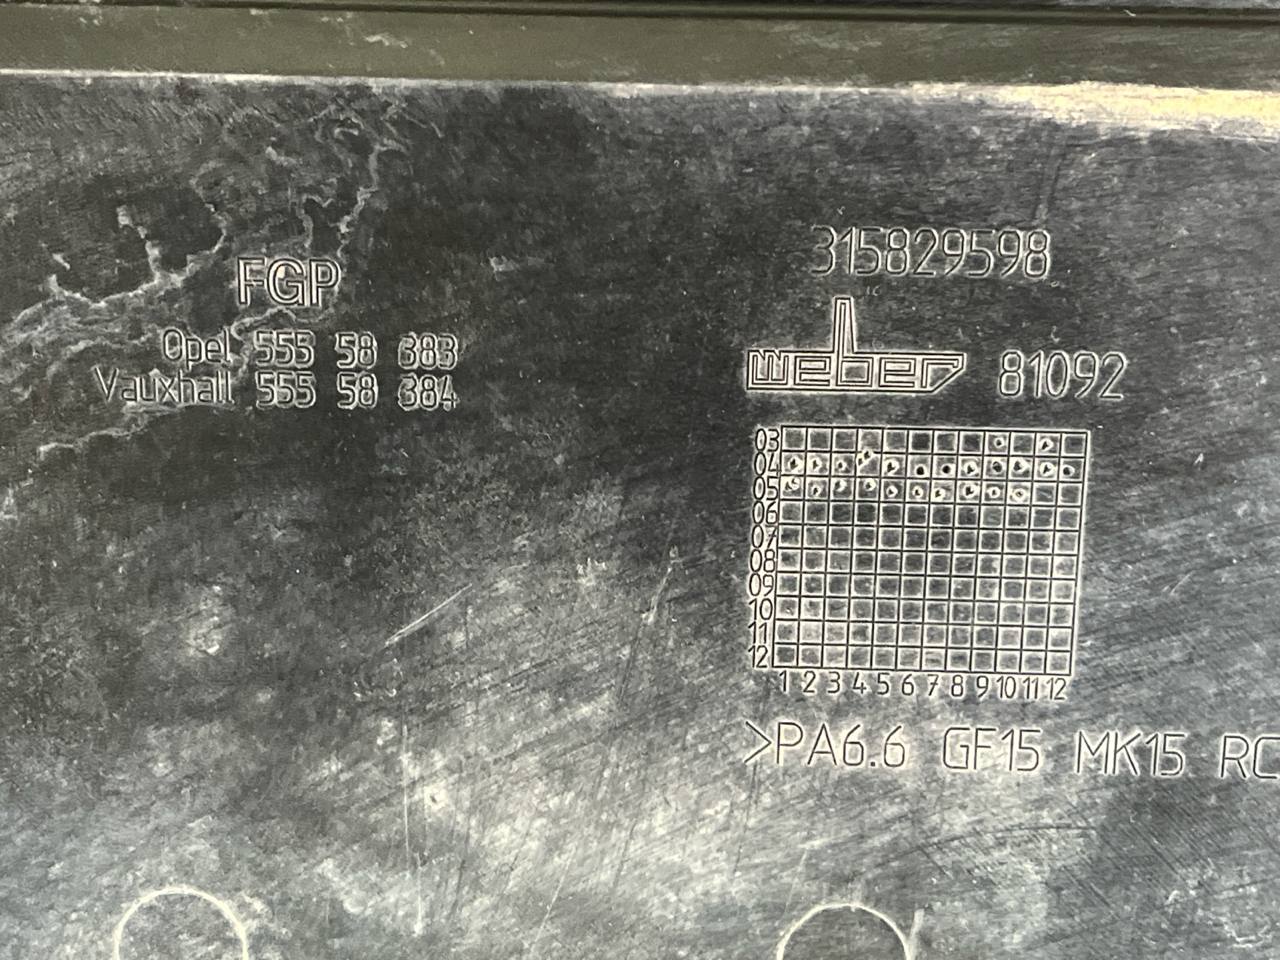 315829598
FGP
Opel 555 58 383
Vauxhall 555 58 384
weber 81092
03
04
05
06
07
08
09
10
11
12
1 2 3 4 5 6 7 8 9 10 11 12
>PA6.6 GF15 MK15 RC